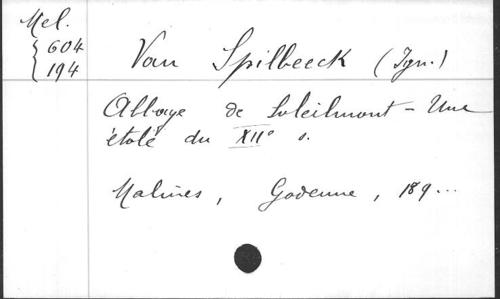 Mel.
604
194
Van Spilbeeck (Ign.)
Abbaye de Soleilmont - Une
étole du XIIe s.
Malines, Godenne, 189...